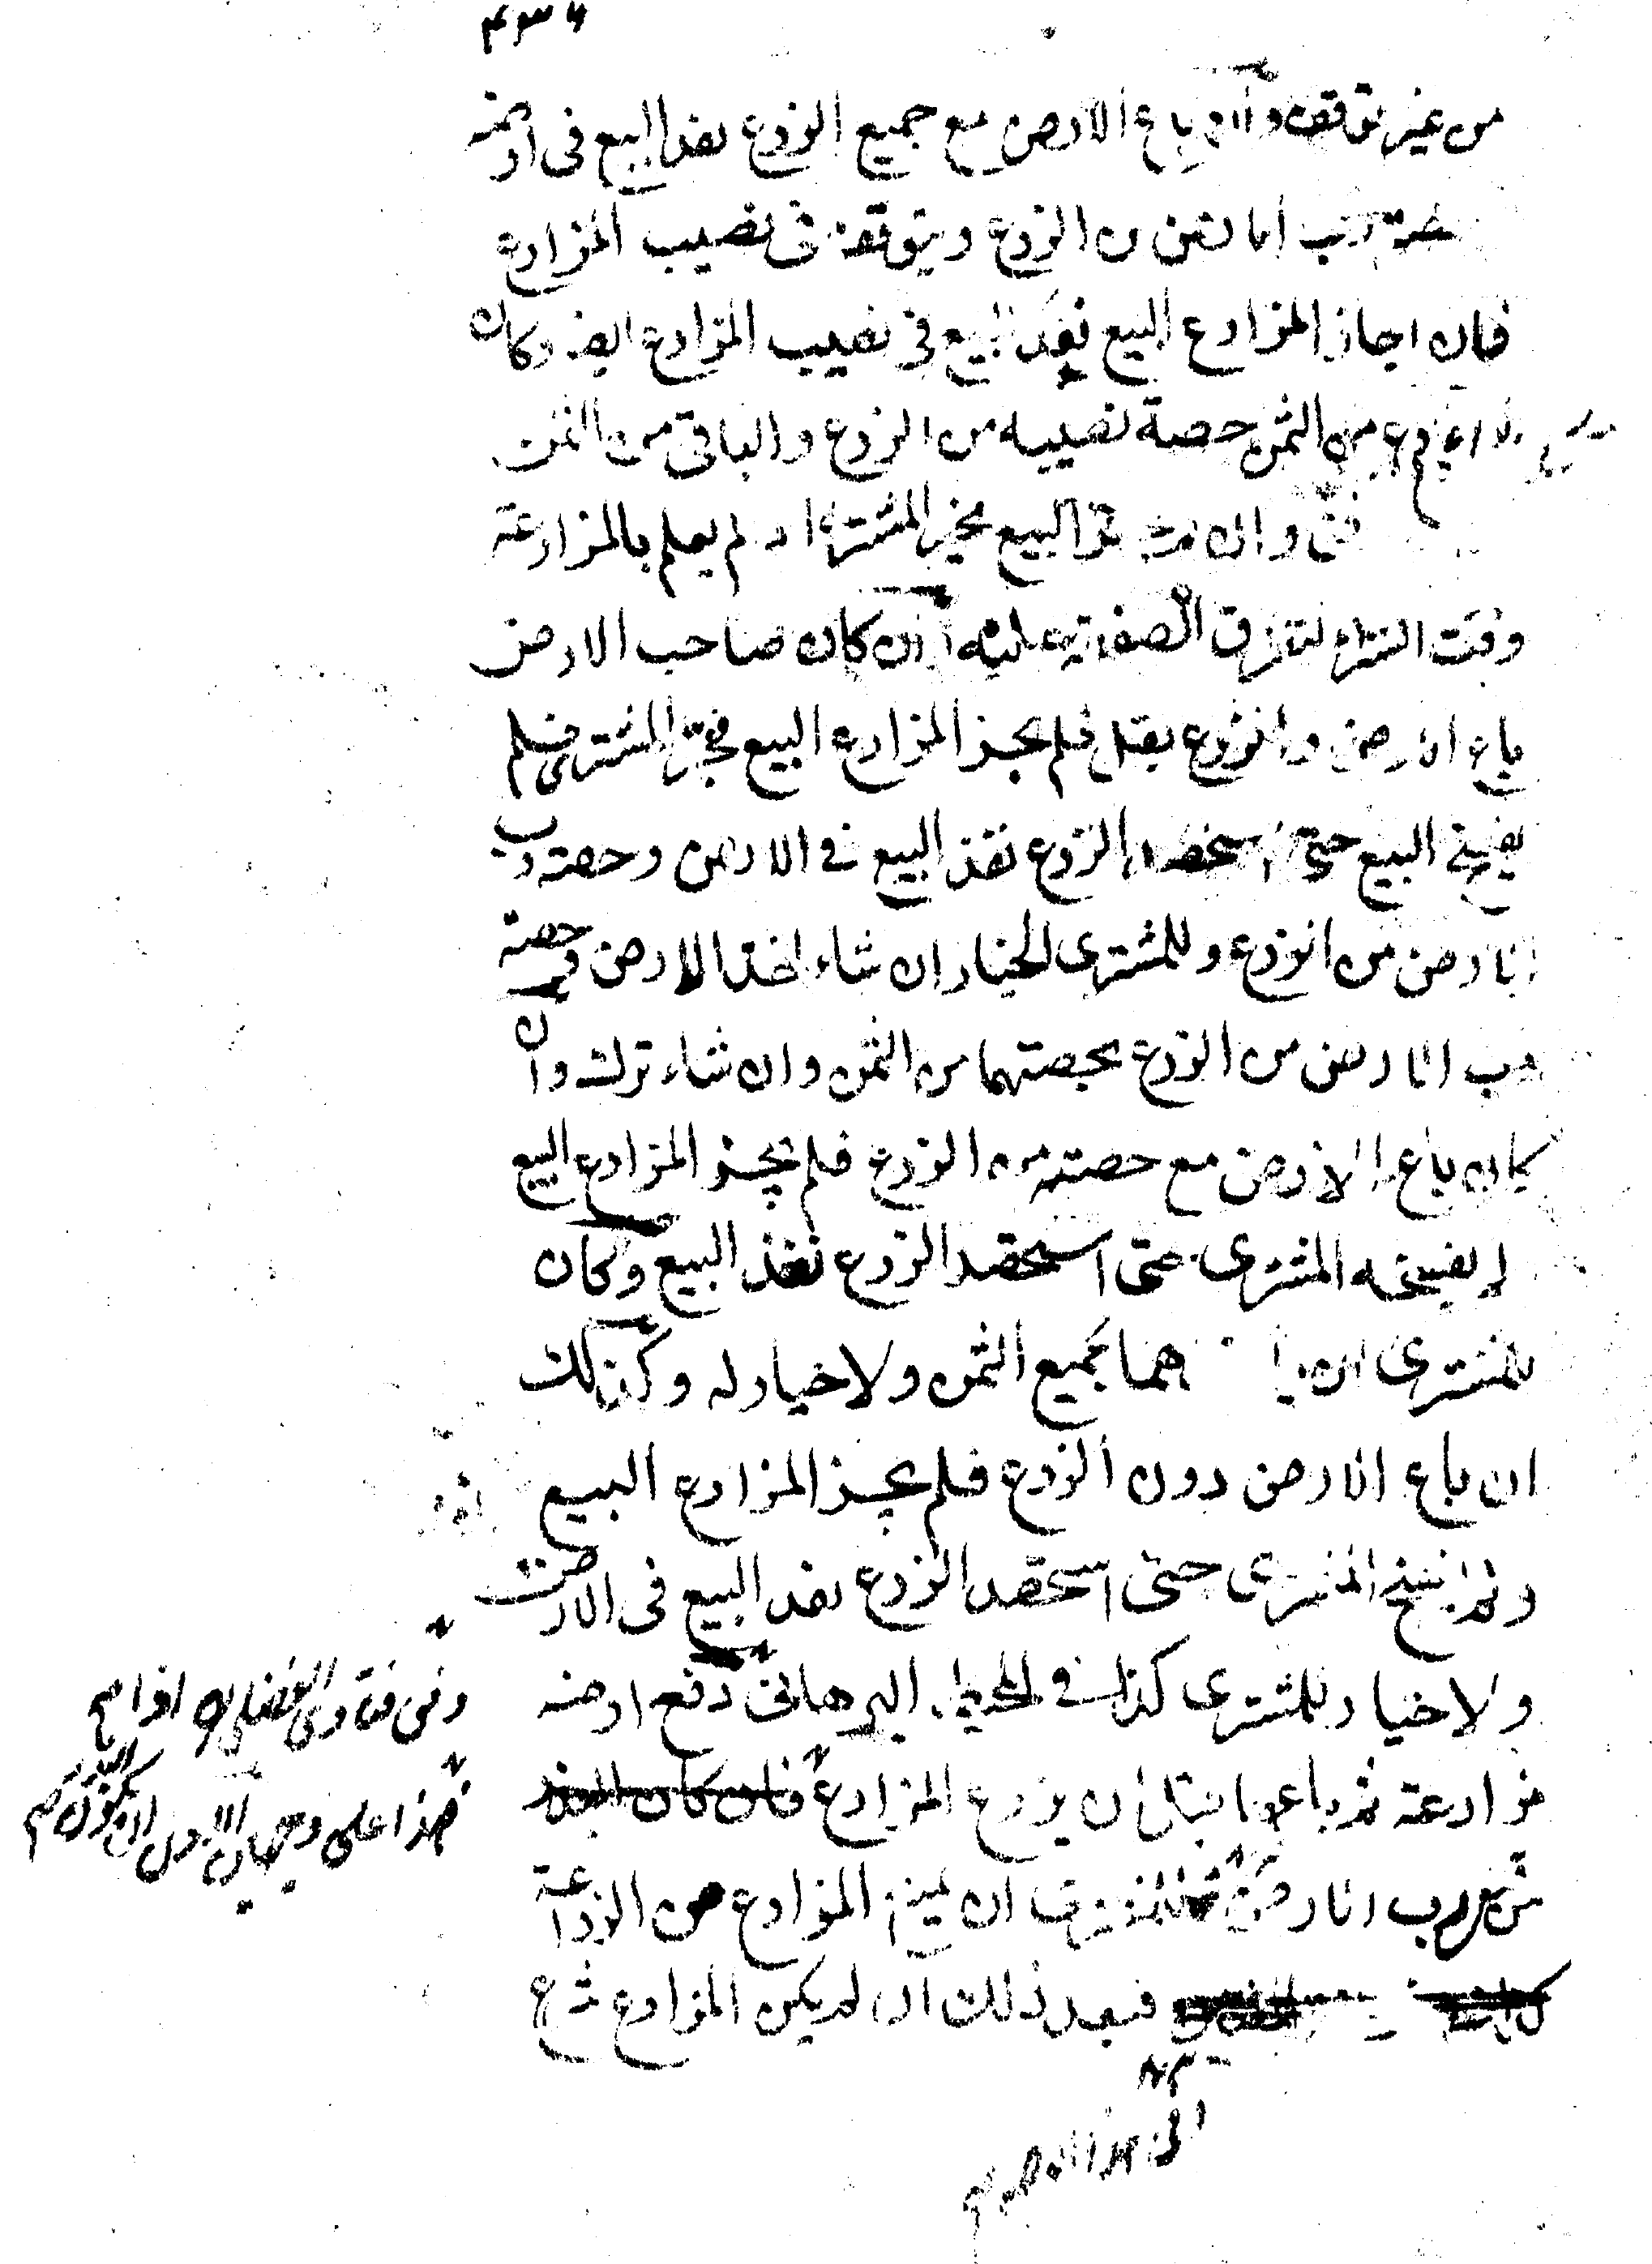 من غير توقف وان باع الارض مع جميع الزرع نفذ البيع فى ارضه
وحصته من الزرع ويتوقف فى نصيب المزارع
فان اجاز المزارع البيع نفذ البيع فى نصيب المزارع ايضا وكان
للمزارع من الثمن حصة نصيبه من الزرع والباقى من الثمن
وان لم يجز البيع يخير المشترى ان لم يعلم بالمزارعة
وقت الشراء لتفرق الصفقة عليه ان كان صاحب الارض
باع الارض والزرع بقل فلم يجز المزارع البيع فخير المشترى فلم
يفسخ البيع حتى استحصد الزرع نفذ البيع فى الارض وحصة رب
الارض من الزرع وللمشترى الخيار ان شاء اخذ الارض وحصة
رب الارض من الزرع بحصتهما من الثمن وان شاء ترك وان
كان باع الارض مع حصته من الزرع فلم يجز المزارع البيع
لم يفسخه المشترى حتى استحصد الزرع نفذ البيع وكان
للمشترى ان بجميع الثمن ولا خيار له وكذلك
ان باع الارض دون الزرع فلم يجز المزارع البيع
ولم يفسخ المشترى حتى استحصد الزرع نفذ البيع فى الارض
ولا خيار للمشترى كذا فى المحيط البرهانى دفع ارضه
مزارعة ثم باعها قبل ان يزرع المزارع فان كان البذر
من رب الارض فللمشترى ان يمنع المزارع من الزراعة
فبعد ذلك ان لم يكن المزارع شرع
وفى فتاوى الفضلى اذا
فهذا على وجهين الاول ان يكون البذر